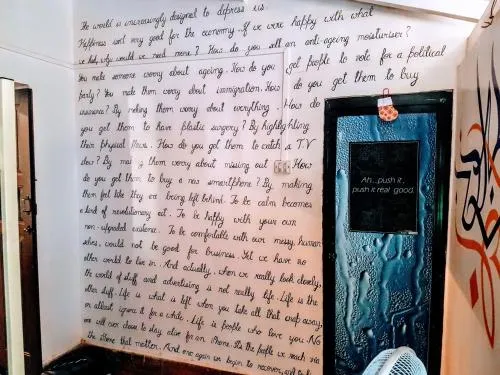 The world is increasingly designed to depress us.
Happiness isn't very good for the economy. If we were happy with what
we had, why would we need more? How do you sell an anti-ageing moisturiser?
You make someone worry about ageing. How do you get people to vote for a political
party? You make them worry about immigration. How do you get them to buy
insurance? By making them worry about everything. How do
you get them to have plastic surgery? By highlighting
their physical flaws. How do you get them to catch a TV
show? By making them worry about missing out. How
do you get them to buy a new smartphone? By making
them feel like they are being left behind. To be calm becomes
a kind of revolutionary act. To be happy with your own
non-upgraded existence. To be comfortable with our messy, human
selves, would not be good for business. Yet we have no
other world to live in. And actually, when we really look closely,
the world of stuff and advertising is not really life. Life is the
other stuff. Life is what is left when you take all that crap away,
or atleast ignore it for a while. Life is people who love you. No
one will ever choose to stay alive for an iPhone. It's the people we reach via
the iPhone that matter. And once again we begin to recover, and to
Ah...push it,
push it real good.